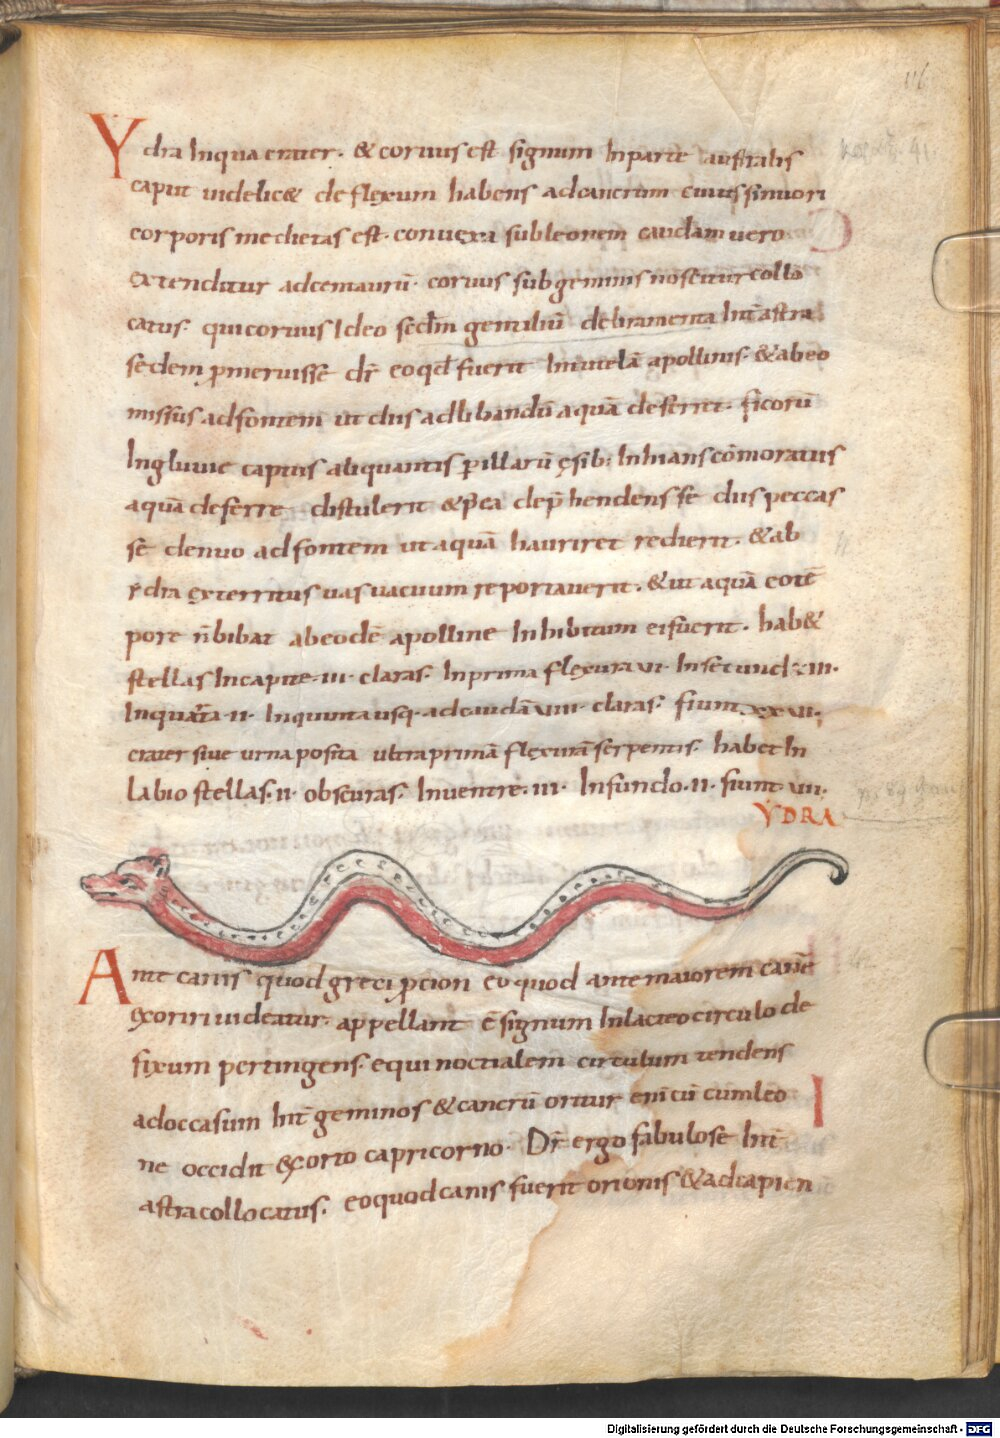 116
Ydra In qua crater · & coruus est signum In parte australis
caput uidelic& deflexum habens ad cancrum cuius sinuori
corporis medietas est · conuexa sub leonem caudam uero
extenditur ad centaurū · coruus sub geminis noscitur collo
catus · qui coruus Ideo secdm gentiliū deliramenta Int astra
sedem pmeruisse dr eo qd fuerit In tutelā apollinis · & ab eo
missus ad fontem ut eius ad libandū aquā deferret · ficorū
Ingluuie captus aliquantis p illarū esib; Inhians cōmoratus
aquā deferre distulerit & p ea dephendens se eius peccas
se denuo ad fontem ut aquā hauriret redierit · & ab
ydra exterritus uas uacuum reportauerit · & ut aquā eo tē
pore n bibat ab eodē apolline Inhibitum ei fuerit · hab&
stellas In capite · III · claras · In prima flexura VI · In secund III ·
In quarta · II · In quinta usq · ad caudā VIIII · claras · fiunt XXVII ·
crater siue urna posita ultra primā flexurā serpentis · habet In
labio stellas · II · obscuras · In uentre · III · In fundo · II · fiunt VII ·
YDRA
Ante canis quod greci pcion eo quod ante maiorem canē
exoriri uideatur · appellant ē signum In lacteo circulo de
fixum pertingens · equinoctialem circulum tendens
ad occasum Int geminos & cancrū oritur eni cū cum leo
ne occidit exorto capricorno · Dr ergo fabulose Int
astra collocatus · eo quod canis fuerit orionis & ad capien
Digitalisierung gefördert durch die Deutsche Forschungsgemeinschaft - DFG